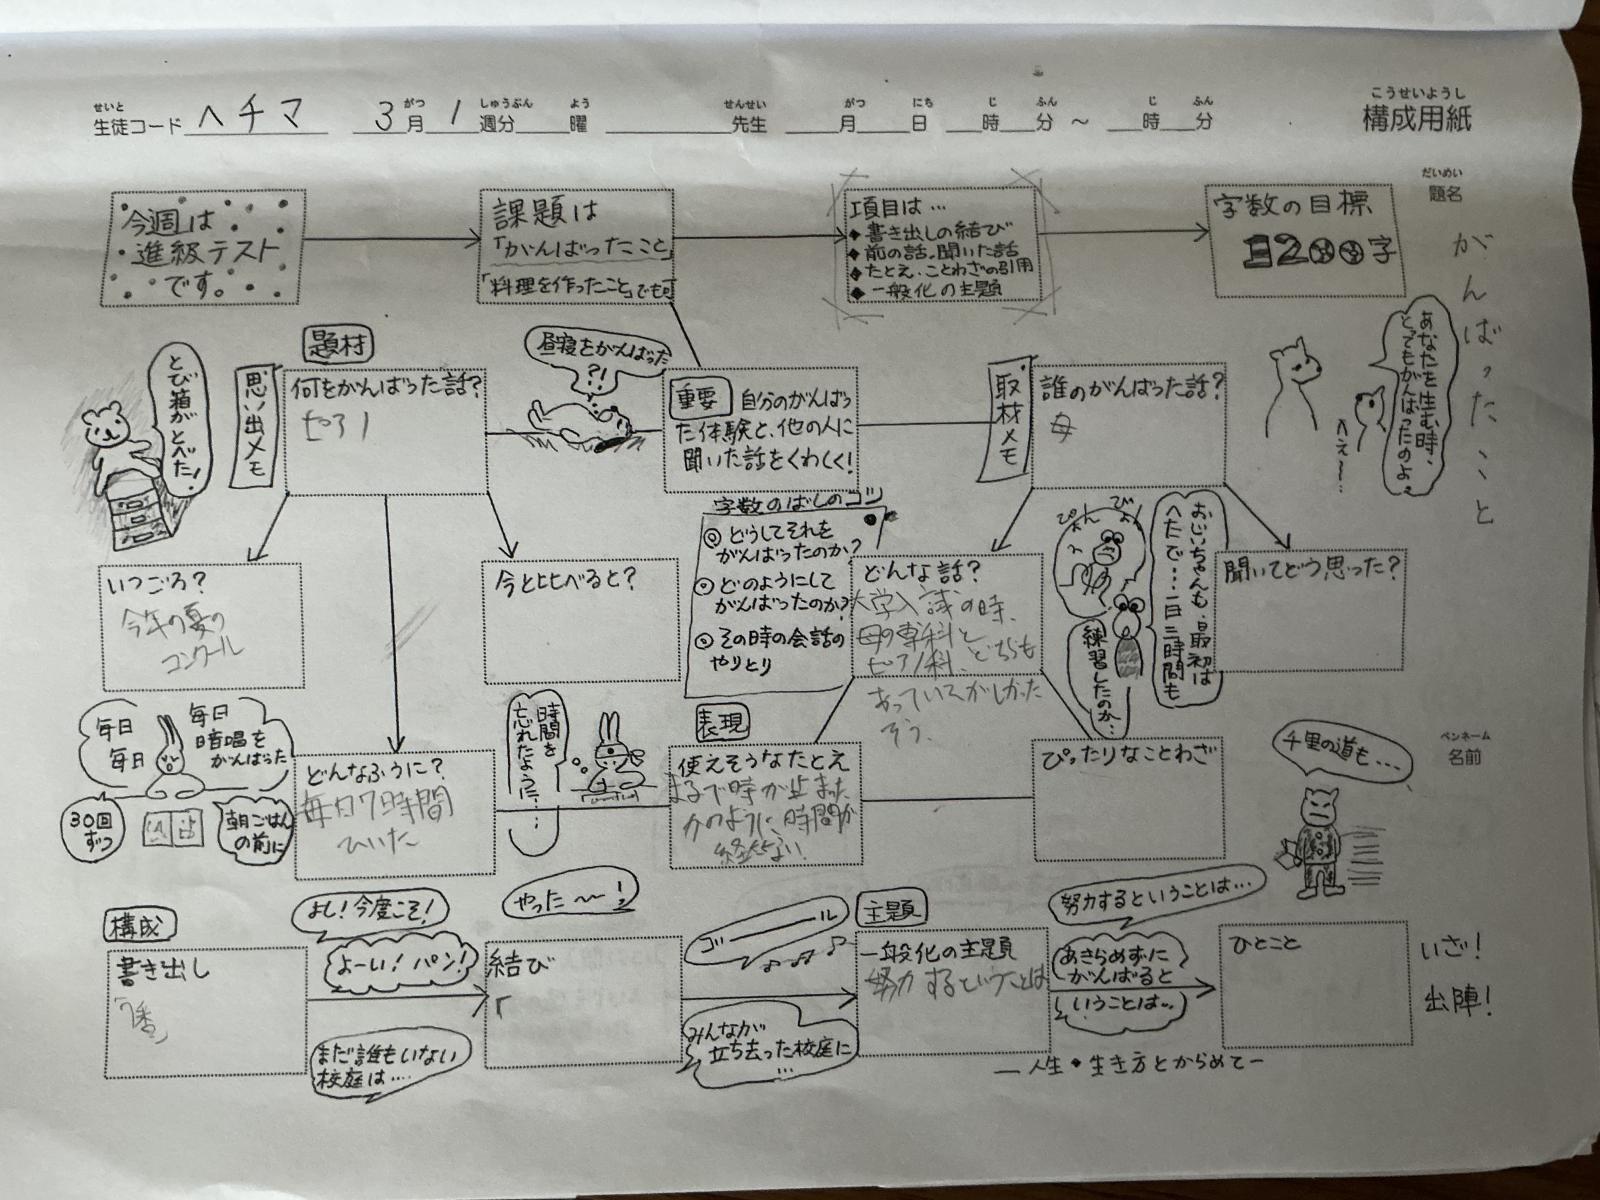 せいと
生徒コード ヘチマ 3月 1週分 曜 先生 月 日 時 分 ～ 時 分
がつ しゅうぶん よう せんせい がつ にち じ ふん じ ふん
こうせいようし
構成用紙
だいめい
題名
がんばったこと
今週は
進級テスト
です。
課題は
「がんばったこと」
「料理を作ったこと」でも可
項目は…
◆書き出しの結び
◆前の話、聞いた話
◆たとえ・ことわざの引用
◆一般化の主題
字数の目標
1200字
とび箱がとべた!
思い出メモ
題材
何をがんばった話?
ピアノ
昼寝をがんばった
?!
重要 自分のがんばっ
た体験と、他の人に
聞いた話をくわしく!
取材メモ
誰のがんばった話?
母
あなたを生む時、
とってもがんばったのよ。
へぇ～…
いつごろ?
今年の夏の
コンクール
今と比べると?
字数のばしのコツ
◎どうしてそれを
がんばったのか?
◎どのようにして
がんばったのか?
◎その時の会話の
やりとり
どんな話?
大学入試の時、
母の専科と
ピアノ科、どちらも
そう。
ぴょん
ぴょん
おじいちゃんも、最初は
へたで…一日三時間も
練習したのか…
聞いてどう思った?
毎日
毎日
毎日
暗唱を
がんばった
30回
ずつ
朝ごはん
の前に
どんなふうに?
毎日7時間
ひいた
時間を
忘れたように…
表現
使えそうなたとえ
まるで時が止また
かのように、時間が
経たない
ぴったりなことわざ
千里の道も…
ペンネーム
名前
構成
書き出し
よし!今度こそ!
よーい!パン!
まだ誰もいない
校庭は…
やった～!
結び
「
ゴール
みんなが
立ち去った校庭に
…
主題
一般化の主題
努力するということは
努力するということは…
あきらめずに
がんばると
いうことは…
ひとこと
いざ!
出陣!
―人生・生き方とからめて―